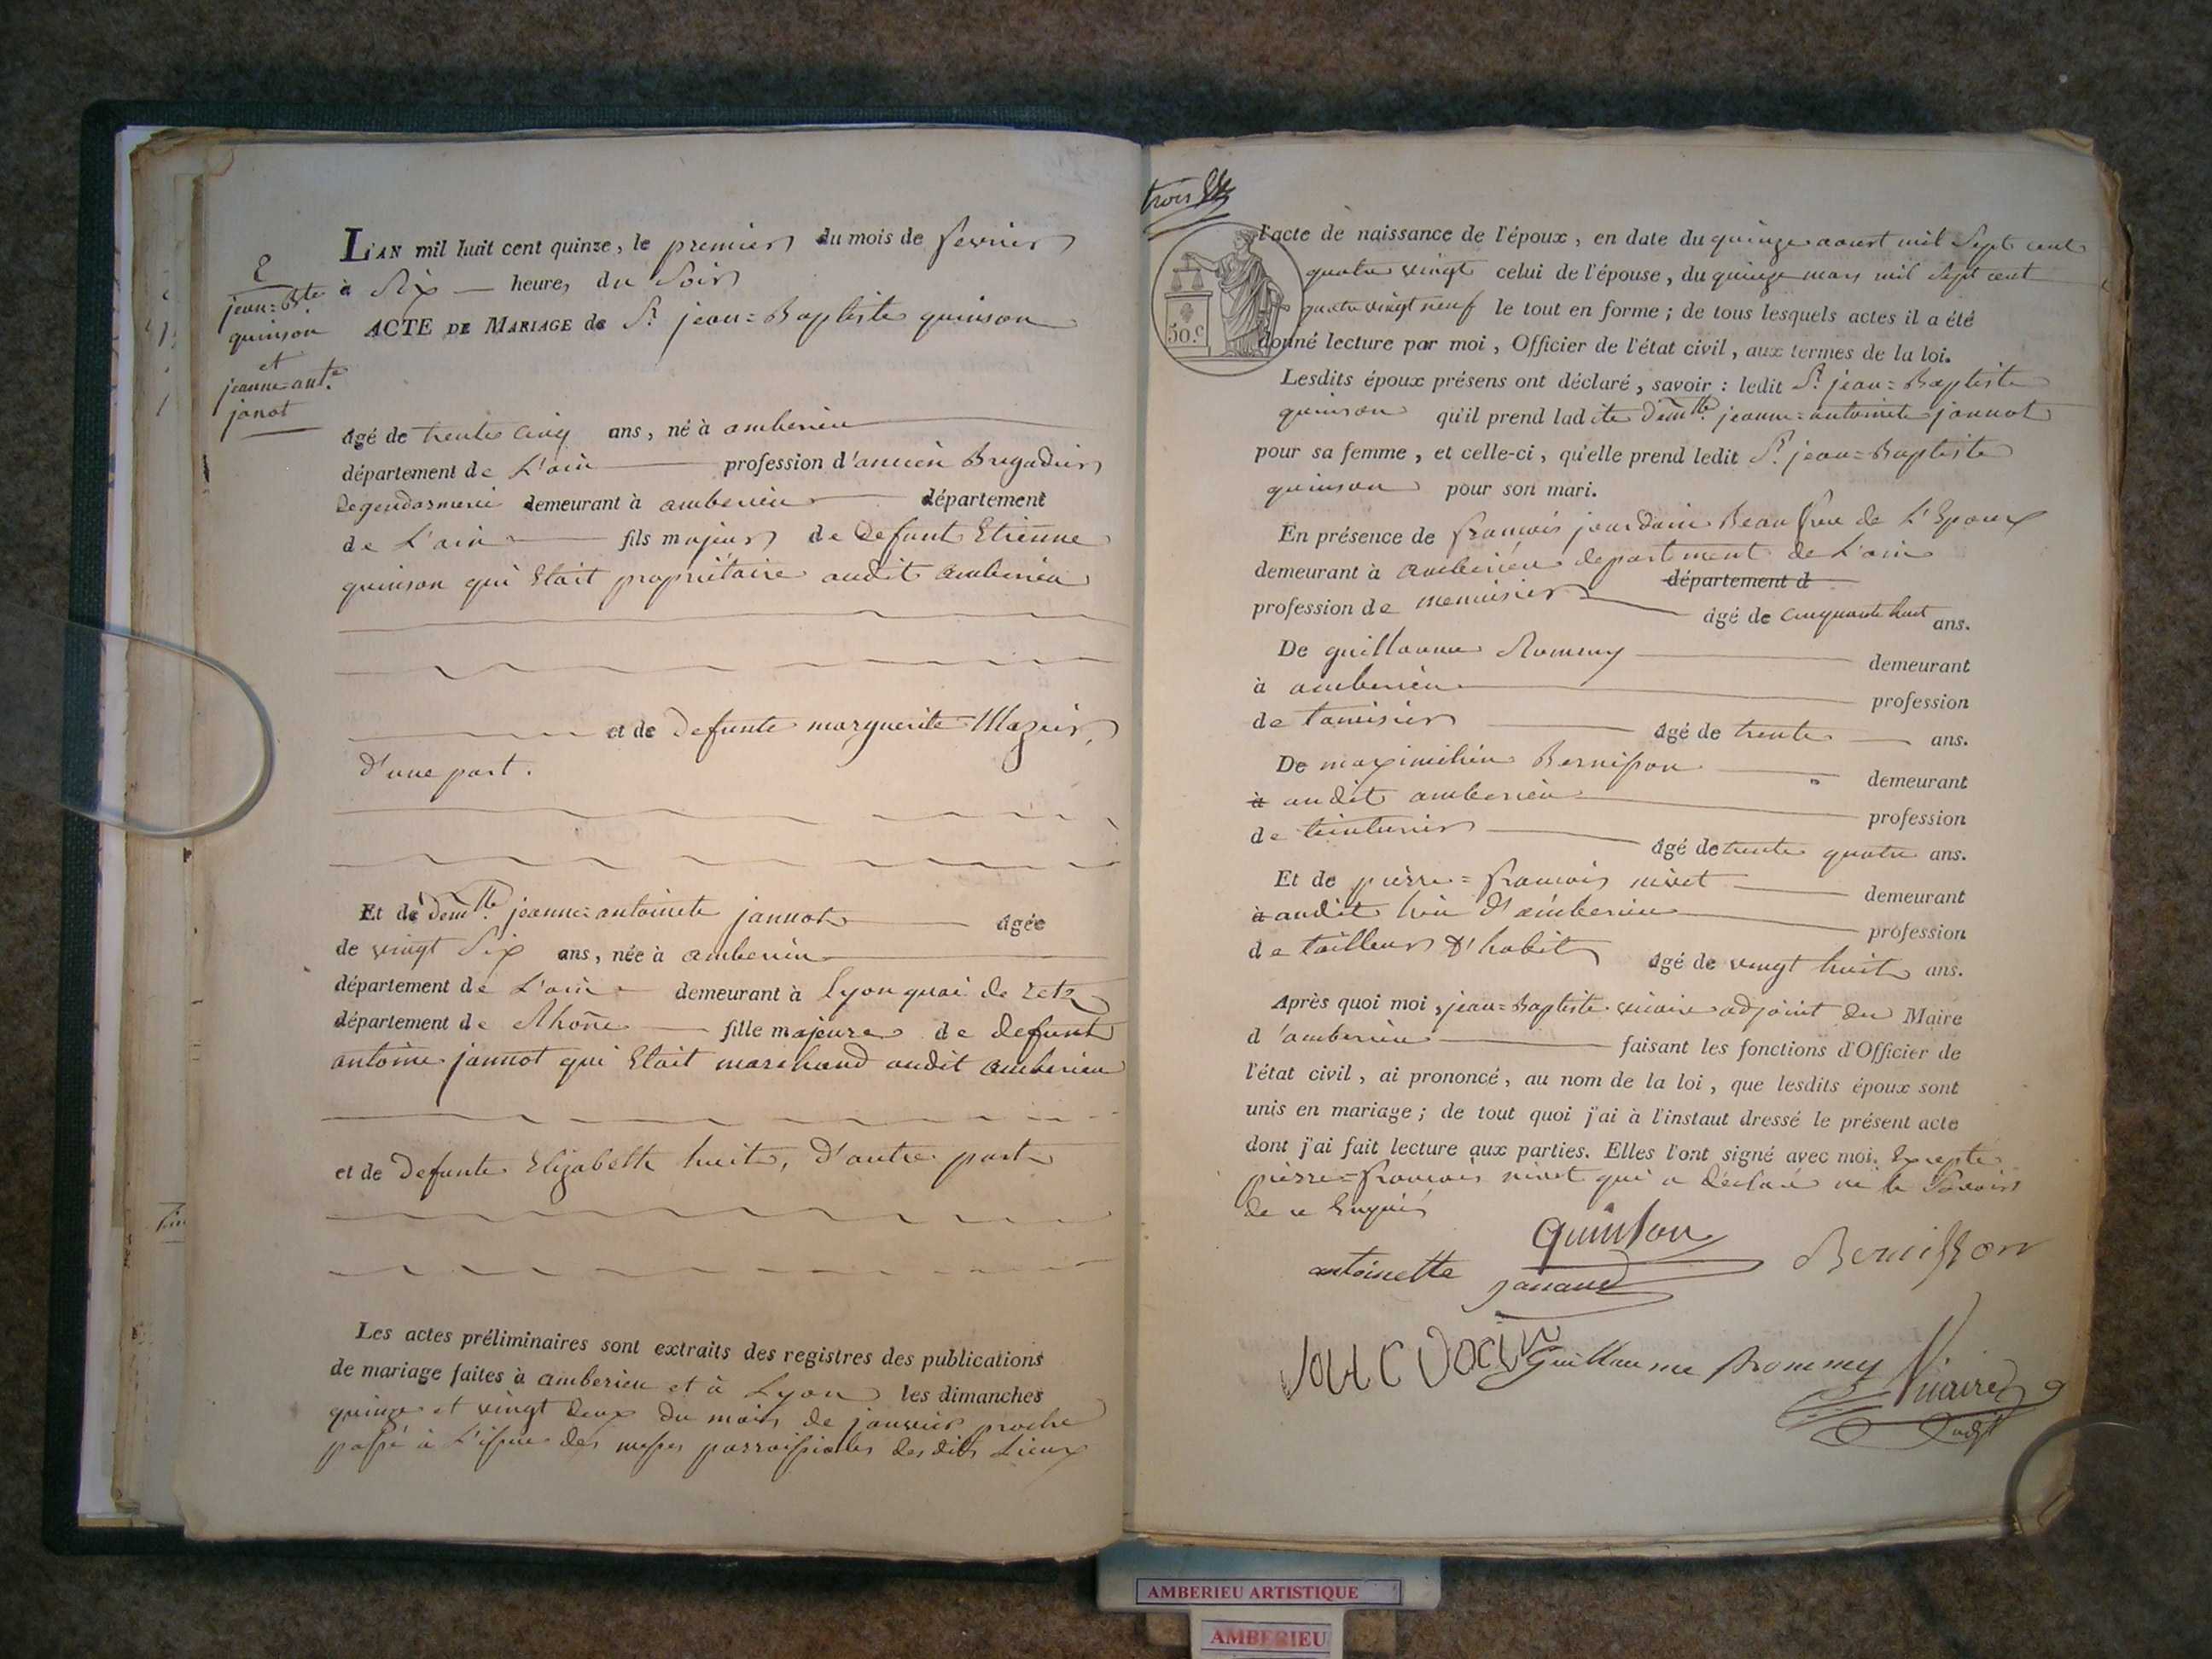 2
jean=Bte
quinson
et
jeanne-ante
janot
L'AN mil huit cent quinze, le premier du mois de fevrier
à Six heure, du Soir
ACTE DE MARIAGE de Sr jean=Baptiste quinson
âgé de trente cinq ans, né à amberieu
département de L'ain profession d'ancien Brigadier
de gendarmerie demeurant à amberieu département
de L'ain fils majeur de Defunt Etienne
quinson qui Etait propriétaire audit amberieu
et de Defunte marguerite
d'une part.
Et de demlle jeanne=antoinete jannot âgée
de vingt Six ans, née à amberieu
département de L'ain demeurant à Lyon quai de retz
département de Rhône fille majeure de defunt
antoine jannot qui Etait marchand audit amberieu
et de Defunte Elizabeth huit, d'autre part
Les actes préliminaires sont extraits des registres des publications
de mariage faites à amberieu et à Lyon les dimanches
quinze et vingt deux du mois de janvier proche
passé à L'issue des messes parroissiales desdits Lieux
trois
50.c
l'acte de naissance de l'époux, en date du quinze aoust mil Sept cent
quatre vingt celui de l'épouse, du quinze mars mil Sept cent
quatre vingt neuf le tout en forme ; de tous lesquels actes il a été
donné lecture par moi, Officier de l'état civil, aux termes de la loi.
Lesdits époux présens ont déclaré, savoir : ledit Sr jean=Baptiste
quinson qu'il prend ladite demlle jeanne=antoinete jannot
pour sa femme, et celle-ci, qu'elle prend ledit Sr jean=Baptiste
quinson pour son mari.
En présence de francois jourdain Beau frere de L'Epoux
demeurant à amberieu departement de L'ain
département d
profession de menuisier âgé de cinquante huit ans.
De guillaume Rommy demeurant
à amberieu profession
de tamisier âgé de trente ans.
De maximilien Bernisson demeurant
à audit amberieu profession
de teinturier âgé de trente quatre ans.
Et de pierre=francois nivet demeurant
à audit lieu d'amberieu profession
de tailleur d'habit âgé de vingt huit ans.
Après quoi moi, jean=Baptiste vicaire adjoint du Maire
d'amberieu faisant les fonctions d'Officier de
l'état civil, ai prononcé, au nom de la loi, que lesdits époux sont
unis en mariage ; de tout quoi j'ai à l'instaut dressé le présent acte
dont j'ai fait lecture aux parties. Elles l'ont signé avec moi. Excepté
pierre=francois nivet qui a déclaré ne le Savoir
de ce Enquis
quinson
antoinette
Bernisson
Guillaume Rommy
Vicaire
adjt
AMBERIEU ARTISTIQUE
AMBERIEU